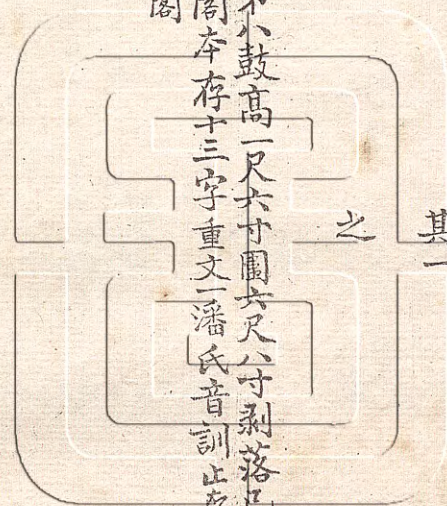 其一
之
八鼓高一尺六寸圍六尺八寸剥落
閣本存十三字重文一潘氏音訓止存
閣